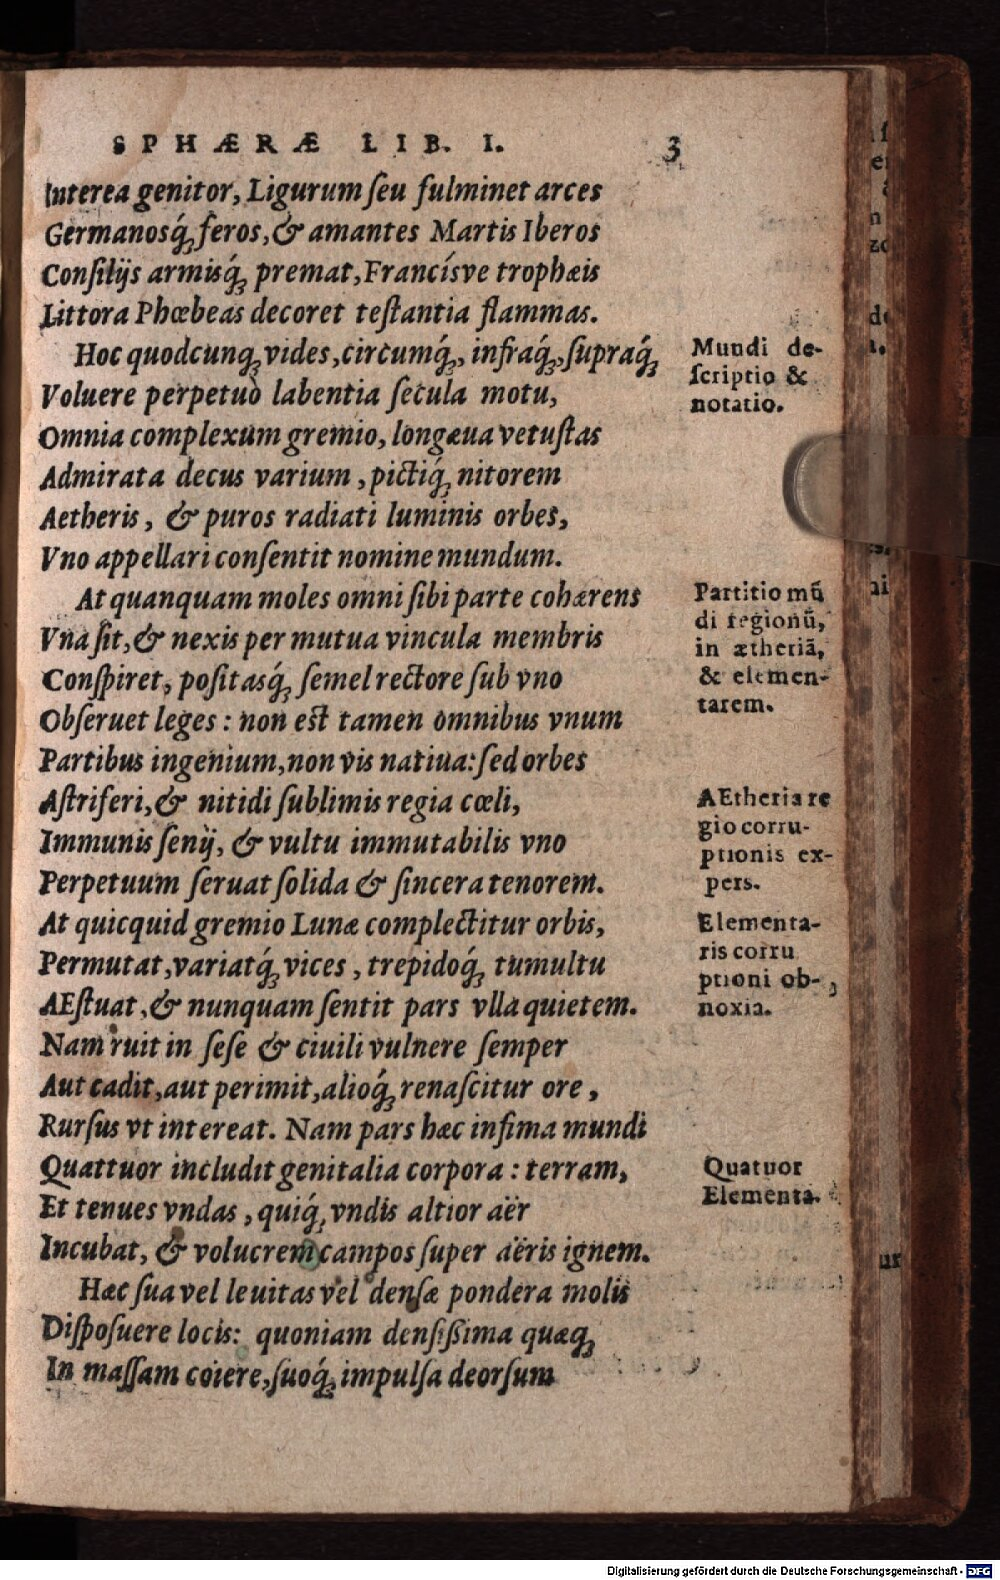 SPHÆRÆ LIB. I. 3
Interea genitor, Ligurum ſeu fulminet arces
Germanosq́ꝫ feros, & amantes Martis Iberos
Conſilijs armisq́ꝫ premat, Francísve trophæis
Littora Phœbeas decoret teſtantia flammas.
Hoc quodcunqꝫ vides, circumq́ꝫ, infraq́ꝫ, ſupraq́ꝫ
Voluere perpetuò labentia ſecula motu,
Omnia complexum gremio, longæua vetuſtas
Admirata decus varium, pictiq́ꝫ nitorem
Aetheris, & puros radiati luminis orbes,
Vno appellari conſentit nomine mundum.
Mundi de-
ſcriptio &
notatio.
At quanquam moles omni ſibi parte cohærens
Vna ſit, & nexis per mutua vincula membris
Conſpiret, poſitasq́ꝫ ſemel rectore ſub vno
Obſeruet leges: non est tamen omnibus vnum
Partibus ingenium, non vis natiua: ſed orbes
Partitio mū
di regionū,
in ætheriã,
& elemen-
tarem.
Aſtriferi, & nitidi ſublimis regia cœli,
Immunis ſenij, & vultu immutabilis vno
Perpetuum ſeruat ſolida & ſincera tenorem.
AEtheria re
gio corru-
ptionis ex-
pers.
At quicquid gremio Lunæ complectitur orbis,
Permutat, variatq́ꝫ vices, trepidoq́ꝫ tumultu
AEſtuat, & nunquam ſentit pars vlla quietem.
Elementa-
ris corru
ptioni ob-
noxia.
Nam ruit in ſeſe & ciuili vulnere ſemper
Aut cadit, aut perimit, alioq́ꝫ renaſcitur ore,
Rurſus vt intereat. Nam pars hæc infima mundi
Quattuor includit genitalia corpora: terram,
Et tenues vndas, quiq́ꝫ vndis altior aër
Incubat, & volucrem campos ſuper aëris ignem.
Quatuor
Elementa.
Hæc ſua vel leuitas vel denſæ pondera molis
Diſpoſuere locis: quoniam denſiſsima quæqꝫ
In maſſam coiere, ſuoq́ꝫ impulſa deorſum
Digitalisierung gefördert durch die Deutsche Forschungsgemeinschaft - DFG